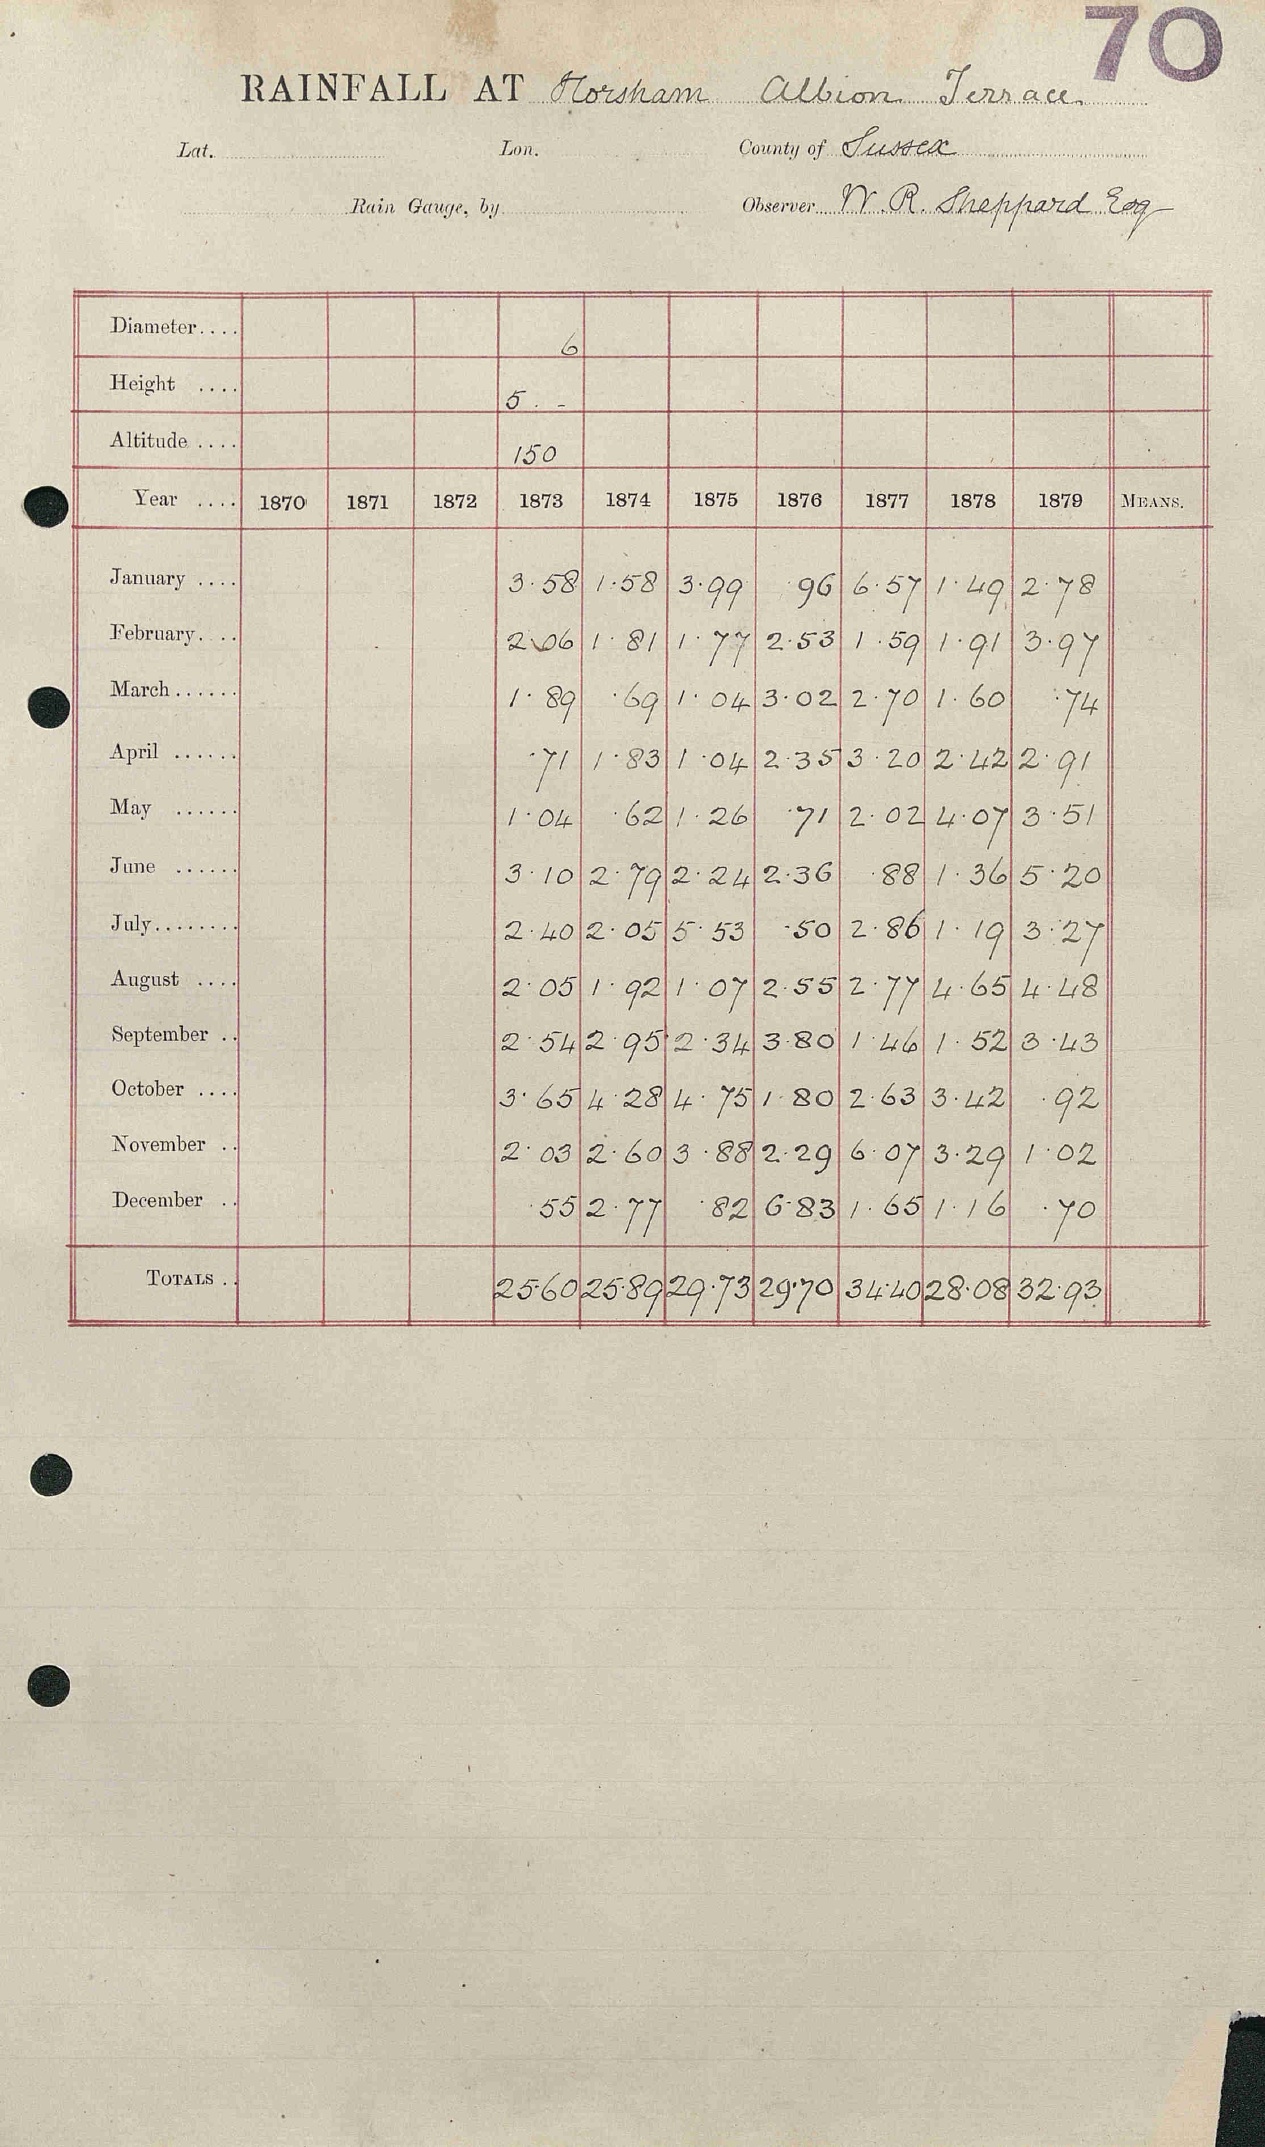 70
RAINFALL AT Horsham Albion Terrace.
Lat. Lon. County of Sussex
Rain Gauge, by Observer W. R. Sheppard Esq
Diameter.... 6
Height .... 5 . -
Altitude .... 150
Year .... 1870 1871 1872 1873 1874 1875 1876 1877 1878 1879 MEANS.
January .... 3.58 1.58 3.99 .96 6.57 1.49 2.78
February.... 2.06 1.81 1.77 2.53 1.59 1.91 3.97
March...... 1.89 .69 1.04 3.02 2.70 1.60 .74
April ...... .71 1.83 1.04 2.35 3.20 2.42 2.91
May ...... 1.04 .62 1.26 .71 2.02 4.07 3.51
June ...... 3.10 2.79 2.24 2.36 .88 1.36 5.20
July........ 2.40 2.05 5.53 .50 2.86 1.19 3.27
August .... 2.05 1.92 1.07 2.55 2.77 4.65 4.48
September .. 2.54 2.95 2.34 3.80 1.46 1.52 3.43
October .... 3.65 4.28 4.75 1.80 2.63 3.42 .92
November .. 2.03 2.60 3.88 2.29 6.07 3.29 1.02
December .. .55 2.77 .82 6.83 1.65 1.16 .70
TOTALS .. 25.60 25.89 29.73 29.70 34.40 28.08 32.93